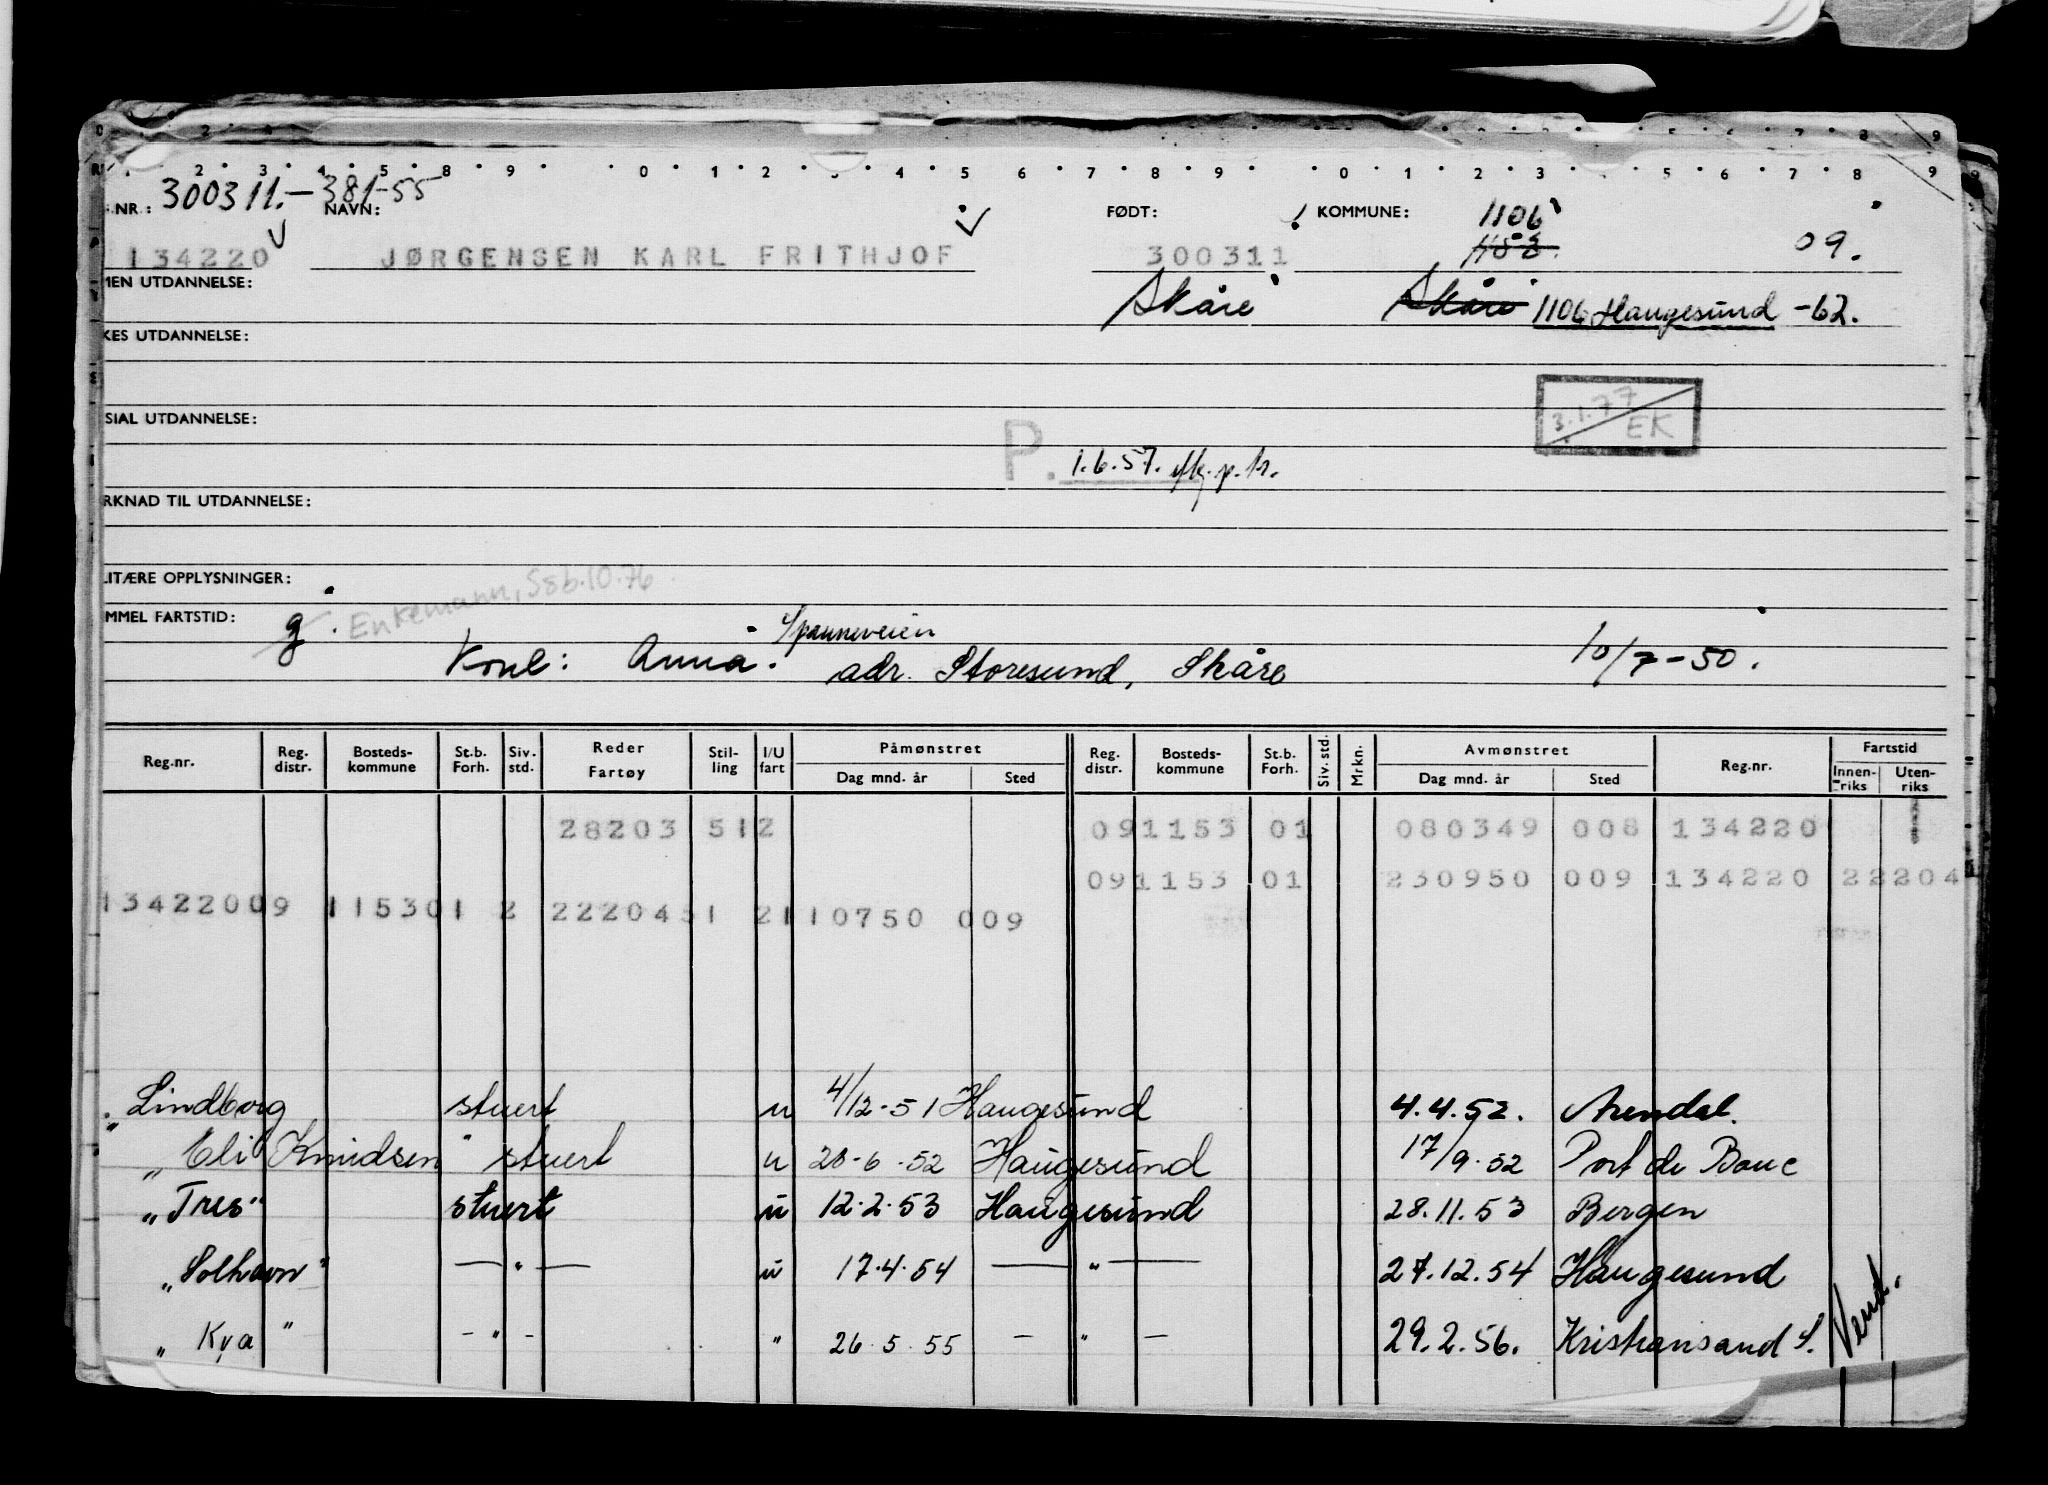 300311.-381-55
.NR.: NAVN: FØDT: KOMMUNE: 1106
134220 JØRGENSEN KARL FRITHJOF 300311 1152 09.
MEN UTDANNELSE: Skåre Skåre 1106 Haugesund -62.
KES UTDANNELSE:
3.1.77 EK
SIAL UTDANNELSE:
P. 1.6.57.
RKNAD TIL UTDANNELSE:
ITÆRE OPPLYSNINGER:
MMEL FARTSTID: g. Enkemann, 10.76
Spanneveien
Kone: Anna. adr. Storesund, Skåre 10/7-50.
Reg.nr. Reg. distr. Bosteds-kommune St.b. Forh. Siv. std. Reder Fartøy Stil-ling I/U fart Påmønstret Dag mnd. år Sted Reg. distr. Bosteds-kommune St.b. Forh. Siv. std. Mrkn. Avmønstret Dag mnd. år Sted Reg.nr. Fartstid Innen-riks Uten-riks
28203 512 091153 01 080349 008 134220
091153 01 230950 009 134220 22204
13422009 115301 2 2220451 2110750 009
„Lindborg stuert u 4/12-51 Haugesund 4.4.52. Arendal.
„Eli Knudsen" stuert u 28-6-52 Haugesund 17/9-52 Port de Bouc
„Tres" stuert u 12.2.53 Haugesund 28.11.53 Bergen
„Solhavn" — " — u 17.4.54 — " — 27.12.54 Haugesund
„Kya" - " - " 26.5.55 — " — 29.2.56. Kristiansand S.
Vend.